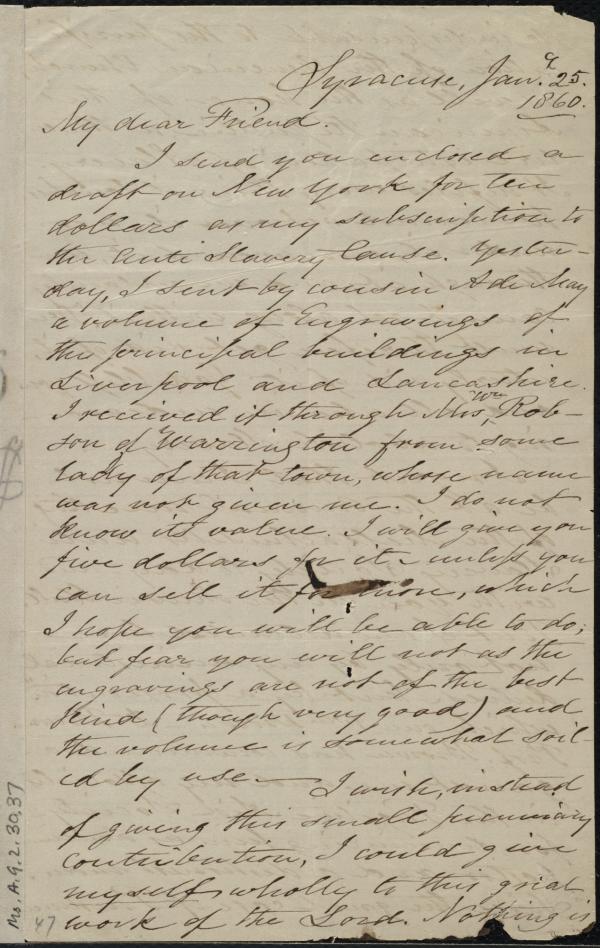 Syracuse, Jan.y 25.
1860.
My dear Friend.
I send you enclosed a
draft on New York for ten
dollars as my subscription to
the Anti Slavery Cause. Yester-
day, I sent by cousin A de May
a volume of Engravings of
the principal buildings in
Liverpool and Lancashire.
I received it through Mrs, Wm Rob-
son of Warrington from some
lady of that town, whose name
was not given me. I do not
know its value. I will give you
five dollars for it - unless you
can sell it for more, which
I hope you will be able to do;
but fear you will not as the
engravings are not of the best
kind (though very good) and
the volume is somewhat soil-
ed by use. — I wish, instead
of giving this small pecuniary
contribution, I could give
myself wholly to this great
work of the Lord. Nothing is
Ms. A. 9. 2. 30, 37
47